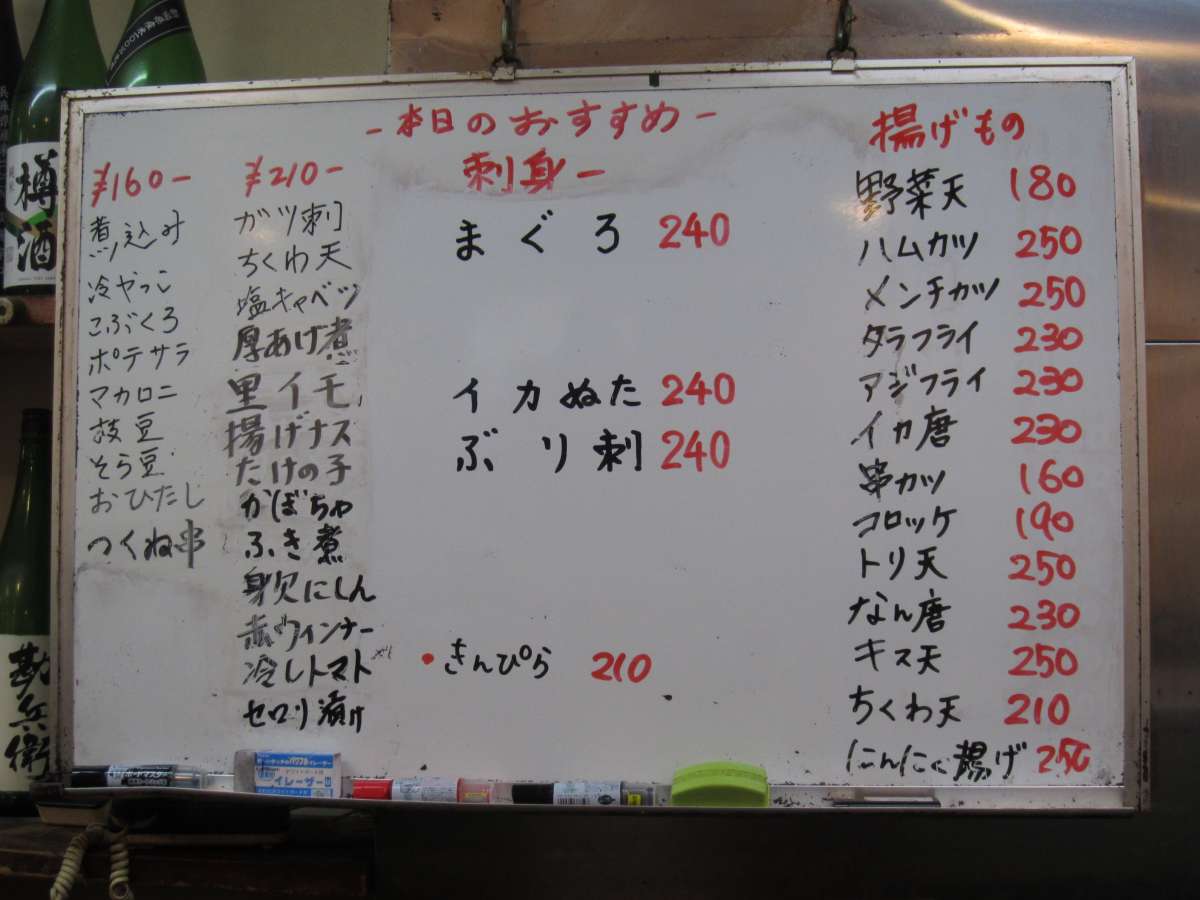 -本日のおすすめ-
¥160-
煮込み
冷やっこ
こぶくろ
ポテサラ
マカロニ
枝豆
そら豆
おひたし
つくね串
¥210-
ガツ刺
ちくわ天
塩キャベツ
厚あげ煮
里イモ
揚げナス
たけの子
かぼちゃ
ふき煮
身欠にしん
赤ウィンナー
冷しトマト
セロリ漬け
刺身-
まぐろ 240
イカぬた 240
ぶり刺 240
・きんぴら 210
揚げもの
野菜天 180
ハムカツ 250
メンチカツ 250
タラフライ 230
アジフライ 230
イカ唐 230
串カツ 160
コロッケ 190
トリ天 250
なん唐 230
キス天 250
ちくわ天 210
にんにく揚げ 250
樽酒
勘兵衛
ボードマスター
イレーザー